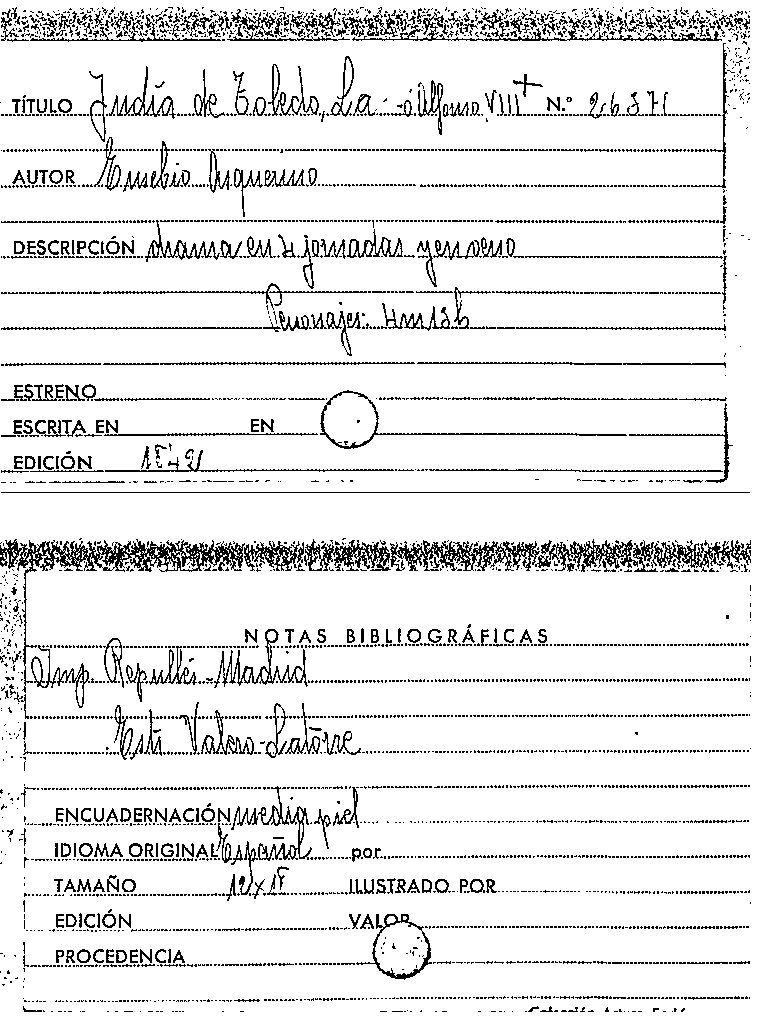 TÍTULO Judía de Toledo, La - o Alfonso VIII + N.° 26371
AUTOR Eusebio Asquerino
DESCRIPCIÓN drama en 4 jornadas y en verso
Personajes: 4m13h
ESTRENO
ESCRITA EN EN
EDICIÓN
NOTAS BIBLIOGRÁFICAS
Imp. Repullés - Madrid
Est: Valero-Latorre
ENCUADERNACIÓN media piel
IDIOMA ORIGINAL Español por
TAMAÑO ILUSTRADO POR
EDICIÓN VALOR
PROCEDENCIA